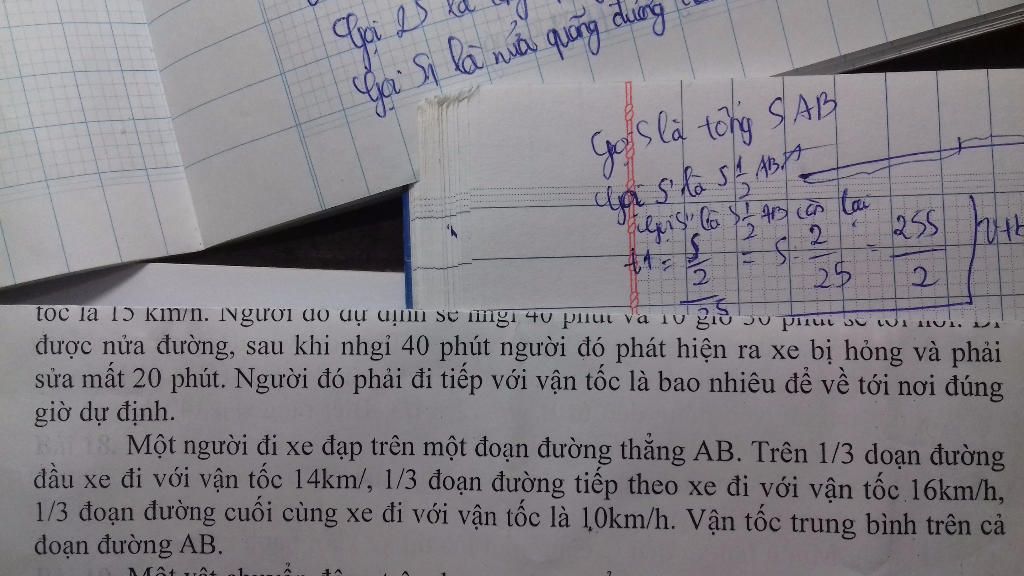 Gọi 2S là
Gọi S1 là nửa quãng đường
Gọi S là tổng S AB
Gọi S' là S 1/2 AB
Gọi S'' là S 1/2 AB còn lại
t1 = S/2/25 = S 2/25 = 25S/2
tốc là 15 km/h. Người đó dự định sẽ nghỉ 40 phút và 10 giờ 30 phút sẽ tới nơi. Đi
được nửa đường, sau khi nhgỉ 40 phút người đó phát hiện ra xe bị hỏng và phải
sửa mất 20 phút. Người đó phải đi tiếp với vận tốc là bao nhiêu để về tới nơi đúng
giờ dự định.
Bài 18. Một người đi xe đạp trên một đoạn đường thẳng AB. Trên 1/3 doạn đường
đầu xe đi với vận tốc 14km/, 1/3 đoạn đường tiếp theo xe đi với vận tốc 16km/h,
1/3 đoạn đường cuối cùng xe đi với vận tốc là 10km/h. Vận tốc trung bình trên cả
đoạn đường AB.
Một vật chuyển động trên